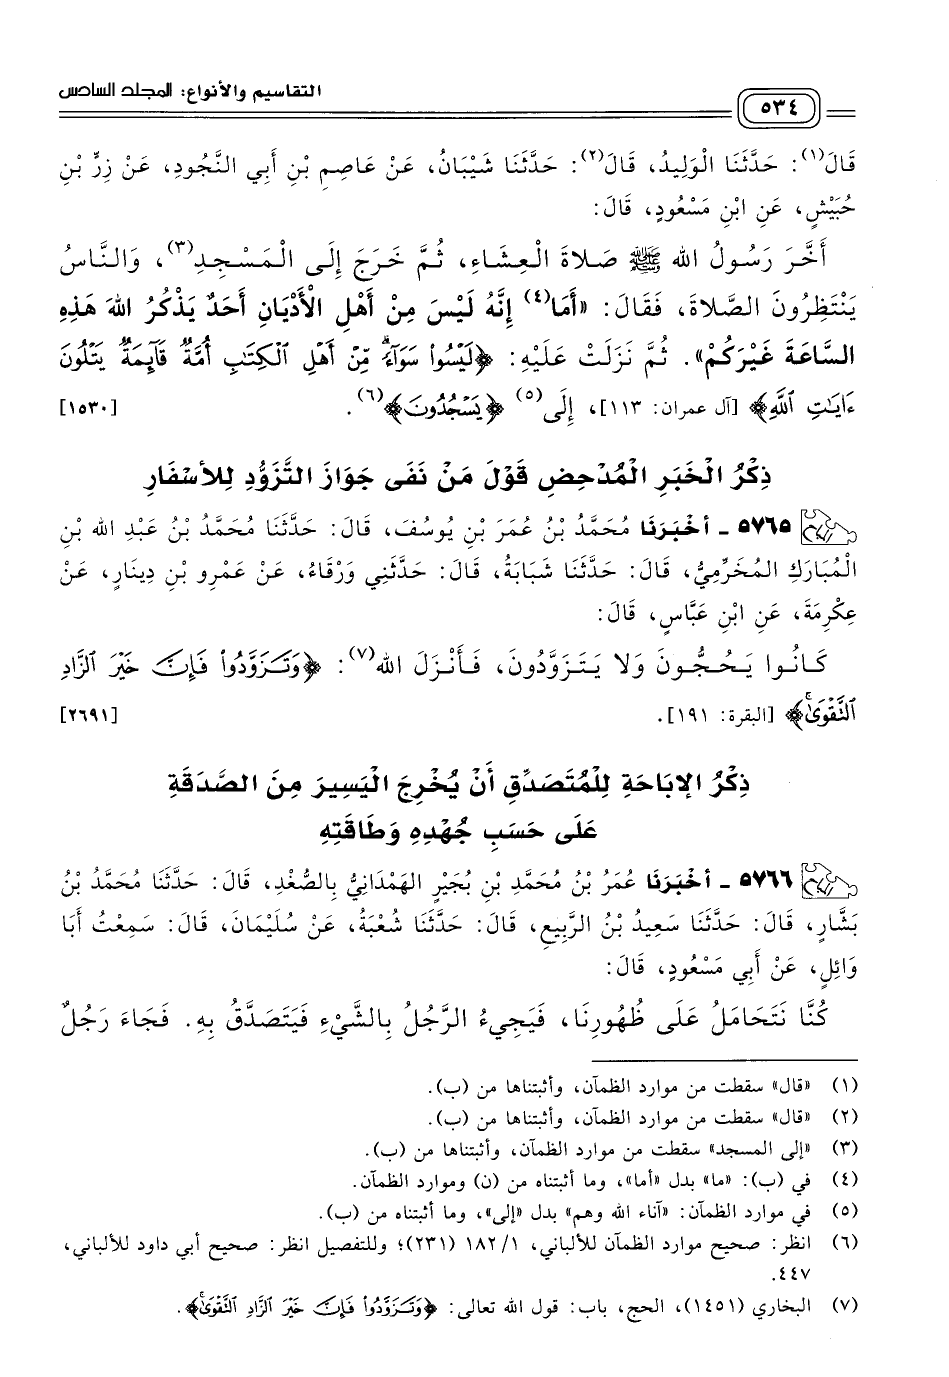 التقاسيم والأنواع: المجلد السادس
٥٣٤
قَالَ(١): حَدَّثَنَا الْوَلِيدُ، قَالَ(٢): حَدَّثَنَا شَيْبَانُ، عَنْ عَاصِمِ بْنِ أَبِي النَّجُودِ، عَنْ زِرِّ بْنِ
حُبَيْشٍ، عَنِ ابْنِ مَسْعُودٍ، قَالَ:
أَخَّرَ رَسُولُ اللهِ ﷺ صَلَاةَ الْعِشَاءِ، ثُمَّ خَرَجَ إِلَى الْمَسْجِدِ(٣)، وَالنَّاسُ
يَنْتَظِرُونَ الصَّلَاةَ، فَقَالَ: «أَمَا(٤) إِنَّهُ لَيْسَ مِنْ أَهْلِ الْأَدْيَانِ أَحَدٌ يَذْكُرُ اللهَ هَذِهِ
السَّاعَةَ غَيْرَكُمْ». ثُمَّ نَزَلَتْ عَلَيْهِ: ﴿لَيْسُوا۟ سَوَآءً ۗ مِّنْ أَهْلِ ٱلْكِتَٰبِ أُمَّةٌ قَآئِمَةٌ يَتْلُونَ
ءَايَٰتِ ٱللَّهِ﴾ [آل عمران: ١١٣]، إِلَى(٥) ﴿يَسْجُدُونَ﴾(٦). [١٥٣٠]
ذِكْرُ الْخَبَرِ الْمُدْحِضِ قَوْلَ مَنْ نَفَى جَوَازَ التَّزَوُّدِ لِلأَسْفَارِ
٥٧٦٥ - أَخْبَرَنَا مُحَمَّدُ بْنُ عُمَرَ بْنِ يُوسُفَ، قَالَ: حَدَّثَنَا مُحَمَّدُ بْنُ عَبْدِ اللهِ بْنِ
الْمُبَارَكِ الْمُخَرِّمِيُّ، قَالَ: حَدَّثَنَا شَبَابَةُ، قَالَ: حَدَّثَنِي وَرْقَاءُ، عَنْ عَمْرِو بْنِ دِينَارٍ، عَنْ
عِكْرِمَةَ، عَنِ ابْنِ عَبَّاسٍ، قَالَ:
كَانُوا يَحُجُّونَ وَلَا يَتَزَوَّدُونَ، فَأَنْزَلَ اللهُ(٧): ﴿وَتَزَوَّدُوا۟ فَإِنَّ خَيْرَ ٱلزَّادِ
ٱلتَّقْوَىٰ ۚ﴾ [البقرة: ١٩١]. [٢٦٩١]
ذِكْرُ الإِبَاحَةِ لِلْمُتَصَدِّقِ أَنْ يُخْرِجَ الْيَسِيرَ مِنَ الصَّدَقَةِ
عَلَى حَسَبِ جُهْدِهِ وَطَاقَتِهِ
٥٧٦٦ - أَخْبَرَنَا عُمَرُ بْنُ مُحَمَّدِ بْنِ بُجَيْرٍ الْهَمْدَانِيُّ بِالصُّغْدِ، قَالَ: حَدَّثَنَا مُحَمَّدُ بْنُ
بَشَّارٍ، قَالَ: حَدَّثَنَا سَعِيدُ بْنُ الرَّبِيعِ، قَالَ: حَدَّثَنَا شُعْبَةُ، عَنْ سُلَيْمَانَ، قَالَ: سَمِعْتُ أَبَا
وَائِلٍ، عَنْ أَبِي مَسْعُودٍ، قَالَ:
كُنَّا نَتَحَامَلُ عَلَى ظُهُورِنَا، فَيَجِيءُ الرَّجُلُ بِالشَّيْءِ فَيَتَصَدَّقُ بِهِ. فَجَاءَ رَجُلٌ
(١) «قال» سقطت من موارد الظمآن، وأثبتناها من (ب).
(٢) «قال» سقطت من موارد الظمآن، وأثبتناها من (ب).
(٣) «إلى المسجد» سقطت من موارد الظمآن، وأثبتناها من (ب).
(٤) في (ب): «ما» بدل «أما»، وما أثبتناه من (ن) وموارد الظمآن.
(٥) في موارد الظمآن: «آناء الله وهم» بدل «إلى»، وما أثبتناه من (ب).
(٦) انظر: صحيح موارد الظمآن للألباني، ١/ ١٨٢ (٢٣١)؛ وللتفصيل انظر: صحيح أبي داود للألباني،
٤٤٧.
(٧) البخاري (١٤٥١)، الحج، باب: قول الله تعالى: ﴿وَتَزَوَّدُوا۟ فَإِنَّ خَيْرَ ٱلزَّادِ ٱلتَّقْوَىٰ ۚ﴾.